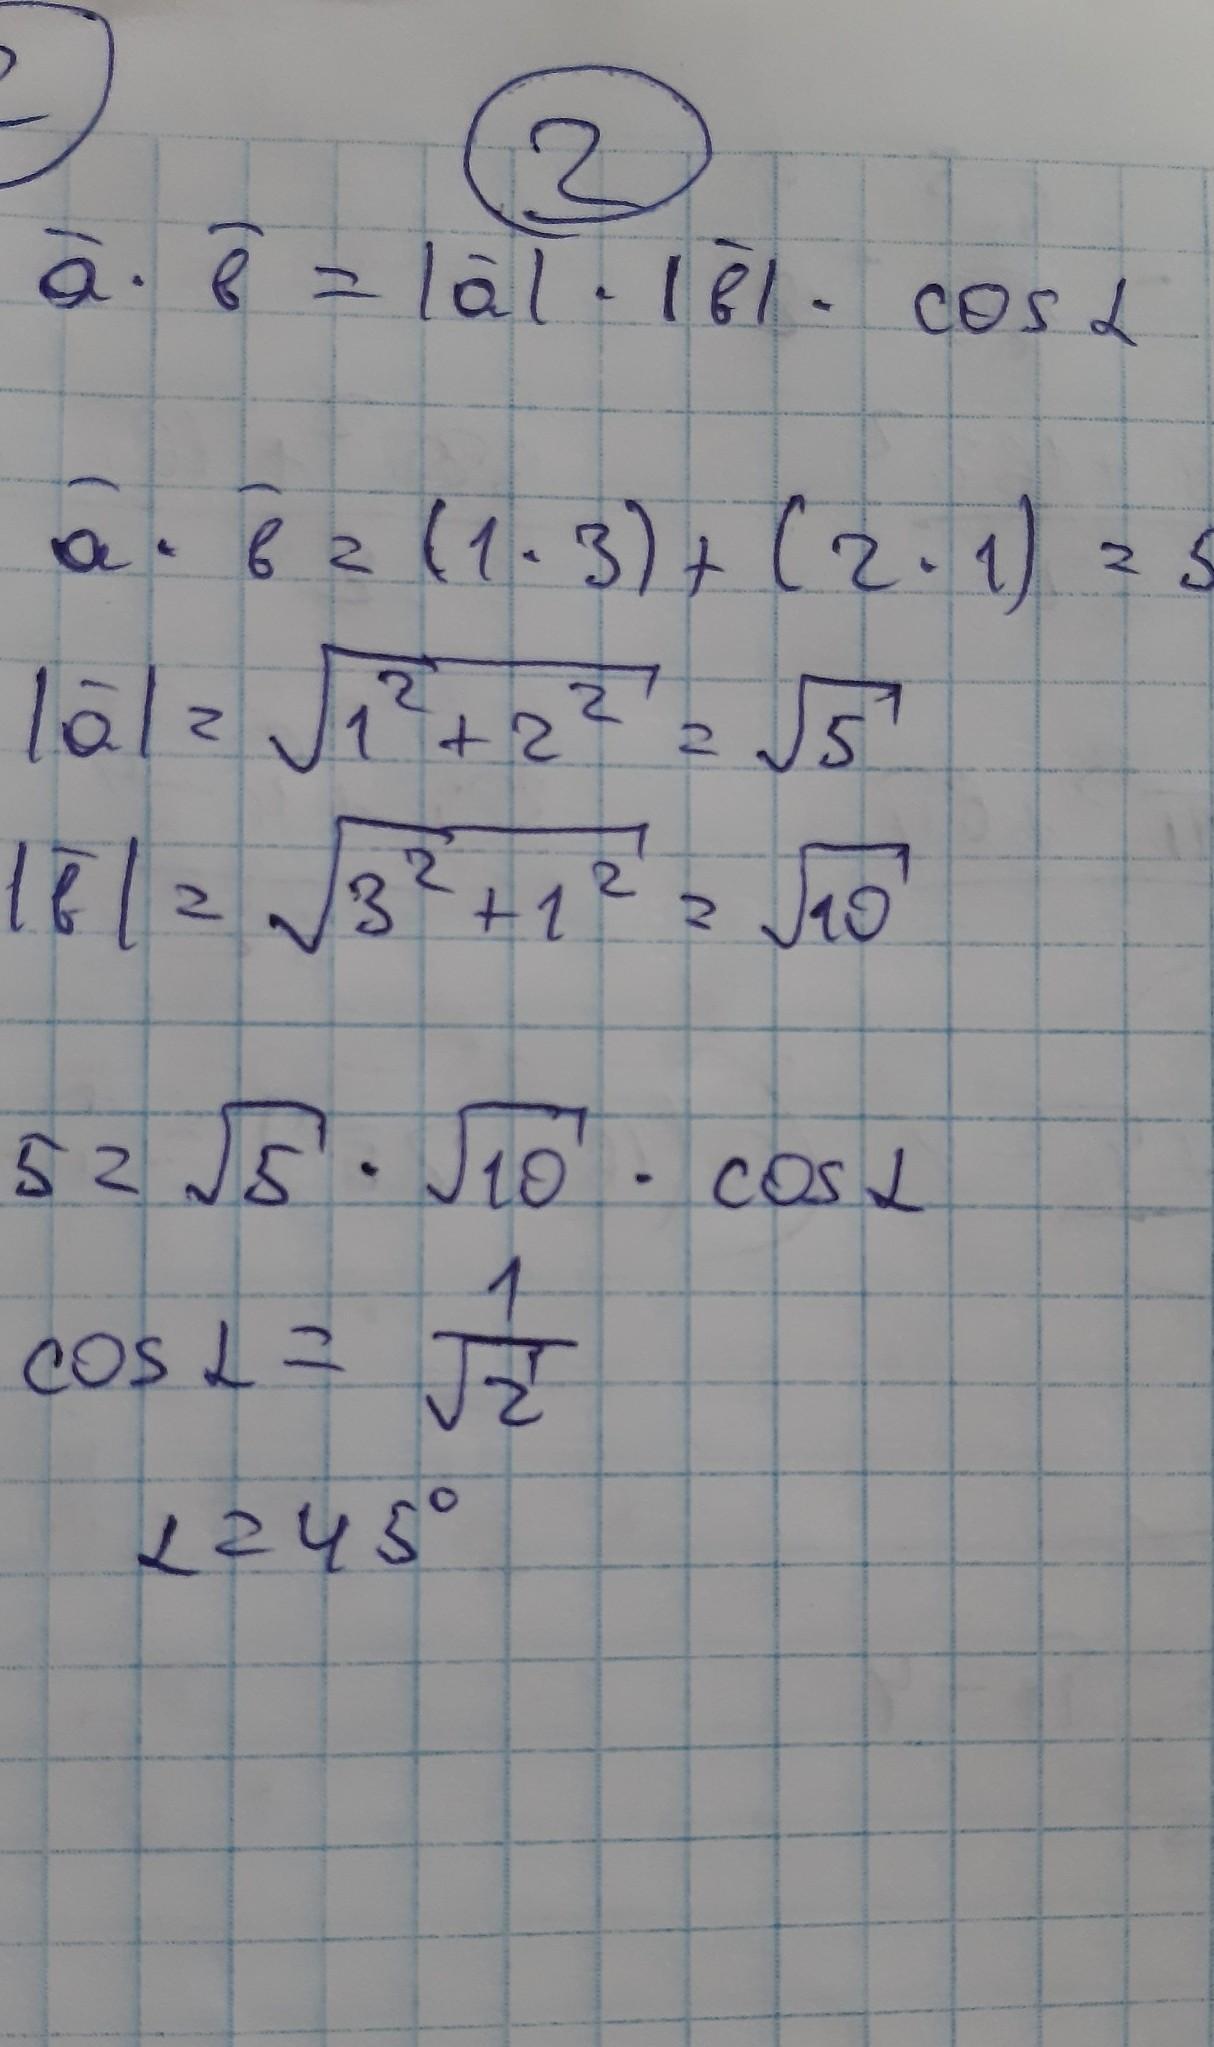 2
ā · в̄ = |ā| · |в̄| · cos α
ā · в̄ = (1 · 3) + (2 · 1) = 5
|ā| = √(1² + 2²) = √5
|в̄| = √(3² + 1²) = √10
5 = √5 · √10 · cos α
cos α = 1/√2
α = 45°